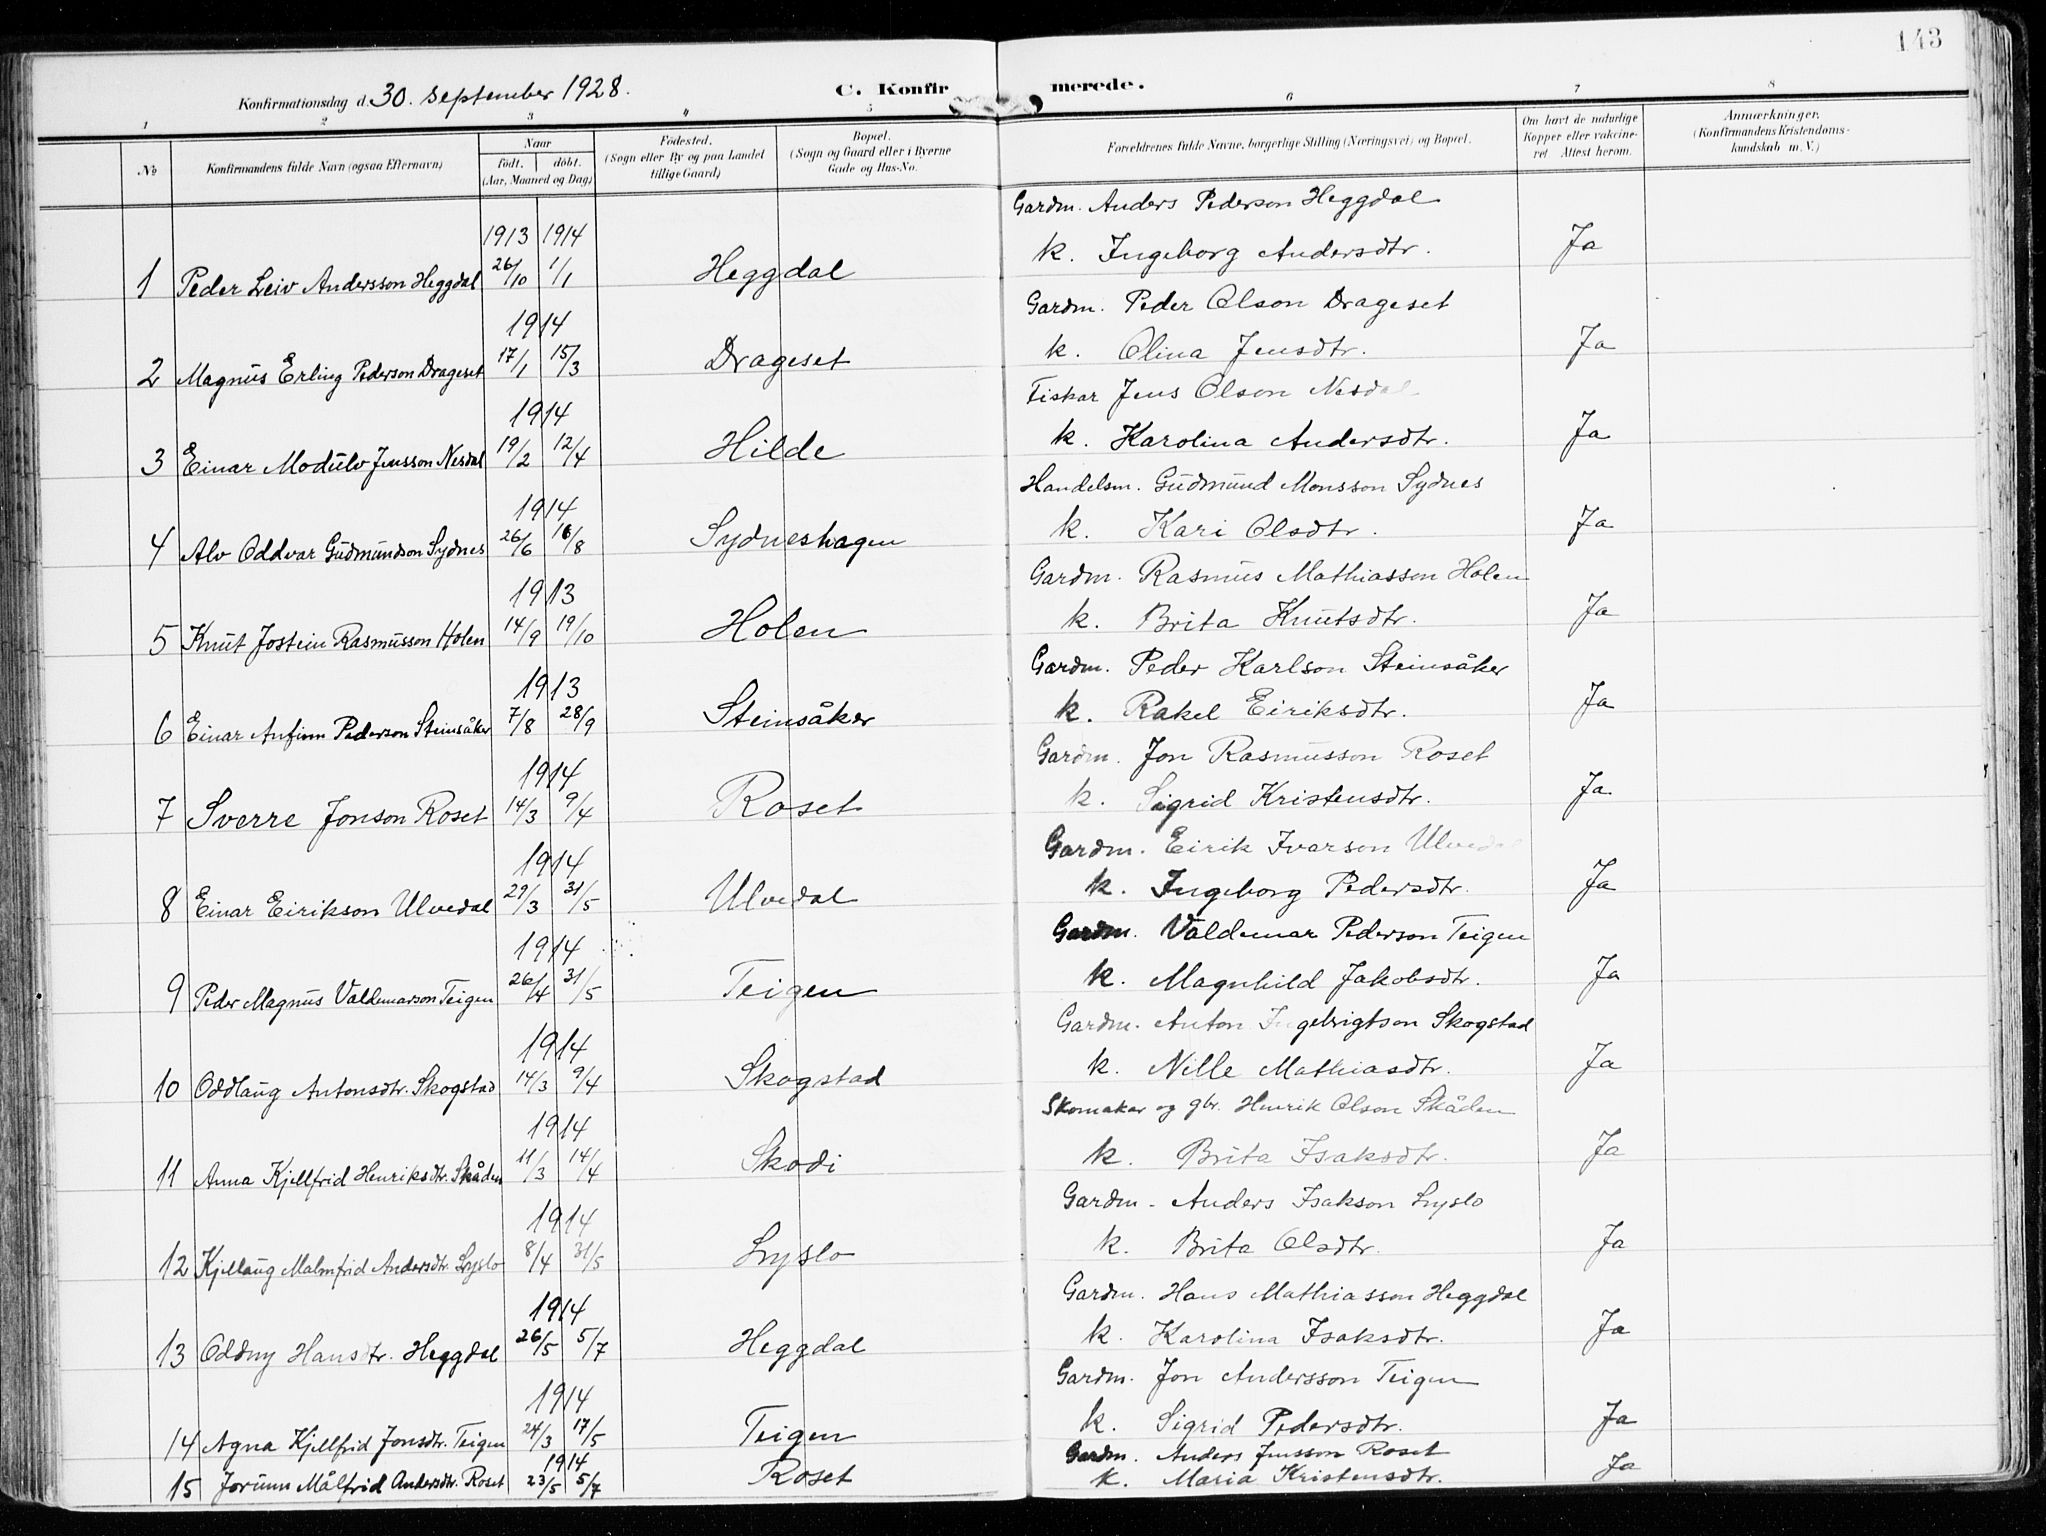 143
Konfirmationsdag d. 30. september 1928.
C. Konfirmerede.
1 2 3 4 5 6 7 8
No
Konfirmandens fulde Navn (ogsaa Efternavn)
Naar
født. døbt.
(Aar, Maaned og Dag)
Fødested.
(Sogn eller By og paa Landet
tillige Gaard)
Bopæl.
(Sogn og Gaard eller i Byerne
Gade og Hus-No.
Forældrenes fulde Navne, borgerlige Stilling (Næringsvei) og Bopæl.
Om havt de naturlige
Kopper eller vakcine-
ret Attest herom.
Anmærkninger.
(Konfirmandens Kristendoms-
kundskab m. V.)
Gardm. Anders Pederson Heggdal
1913 1914
1 Peder Leiv Andersson Heggdal 26/10 1/1 Heggdal k. Ingeborg Andersdtr. Ja
Gardm. Peder Olson Drageset
1914
2 Magnus Erling Pederson Drageset 17/1 15/3 Drageset k. Olina Jensdtr. Ja
Fiskar Jens Olson Nesdal
1914
3 Einar Modulv Jensson Nesdal 19/2 12/4 Hilde k. Karolina Andersdtr. Ja
Handelsm. Gudmund Monsson Sydnes
1914
4 Alv Oddvar Gudmundson Sydnes 26/6 16/8 Sydneshagen k. Kari Olsdtr. Ja
Gardm. Rasmus Mathiasson Holen
1913
5 Knut Jostein Rasmusson Holen 14/9 19/10 Holen k. Brita Knutsdtr. Ja
Gardm. Peder Karlson Steinsåker
1913
6 Einar Anfinn Pederson Steinsåker 7/8 28/9 Steinsåker k. Rakel Eiriksdtr. Ja
Gardm. Jon Rasmusson Roset
1914
7 Sverre Jonson Roset 14/3 9/4 Roset k. Sigrid Kristensdtr. Ja
Gardm. Eirik Ivarson Ulvedal
1914
8 Einar Eirikson Ulvedal 29/3 31/5 Ulvedal k. Ingeborg Pedersdtr. Ja
Gardm. Valdemar Pederson Teigen
1914
9 Peder Magnus Valdemarson Teigen 26/4 31/5 Teigen k. Magnhild Jakobsdtr. Ja
Gardm. Anton Ingebrigtson Skogstad
1914
10 Oddlaug Antonsdtr. Skogstad 14/3 9/4 Skogstad k. Nille Mathiasdtr. Ja
Skomakar og gbr. Henrik Olson Skåden
1914
11 Anna Kjellfrid Henriksdtr. Skåden 11/3 14/4 Skodi k. Brita Isaksdtr. Ja
Gardm. Anders Isakson Lyslo
1914
12 Kjellaug Malmfrid Andersdtr. Lyslo 8/4 31/5 Lyslo k. Brita Olsdtr. Ja
Gardm. Hans Mathiasson Heggdal
1914
13 Oddny Hansdtr. Heggdal 26/5 5/7 Heggdal k. Karolina Isaksdtr. Ja
Gardm. Jon Andersson Teigen
1914
14 Agna Kjellfrid Jonsdtr. Teigen 24/3 17/5 Teigen k. Sigrid Pedersdtr. Ja
Gardm. Anders Jensson Roset
1914
15 Jorunn Målfrid Andersdtr. Roset 23/5 5/7 Roset k. Maria Kristensdtr. Ja